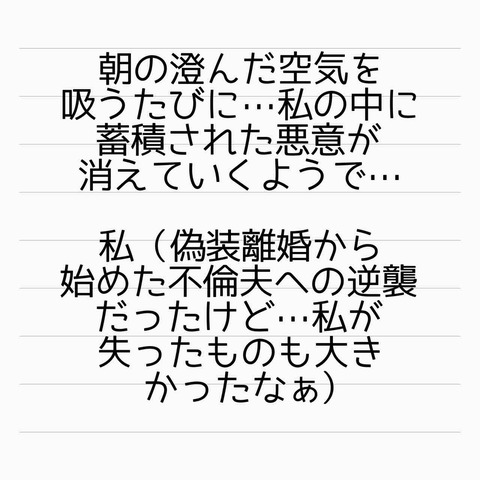 朝の澄んだ空気を
吸うたびに…私の中に
蓄積された悪意が
消えていくようで…
私（偽装離婚から
始めた不倫夫への逆襲
だったけど…私が
失ったものも大き
かったなぁ）